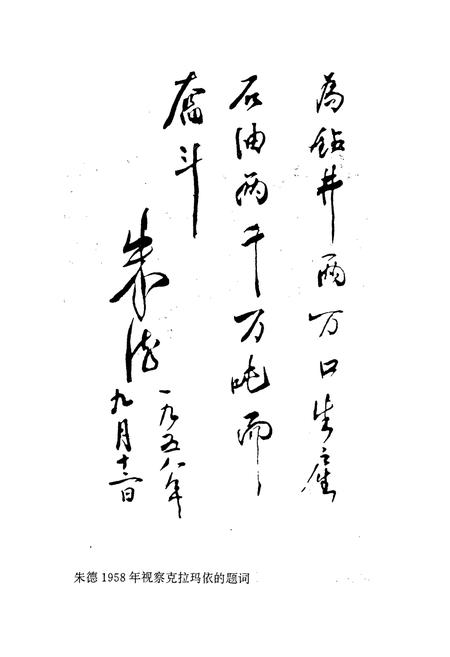 为钻井两万口生产
石油两千万吨而
奋斗
朱德
一九五八年
九月十二日
朱德1958年视察克拉玛依的题词